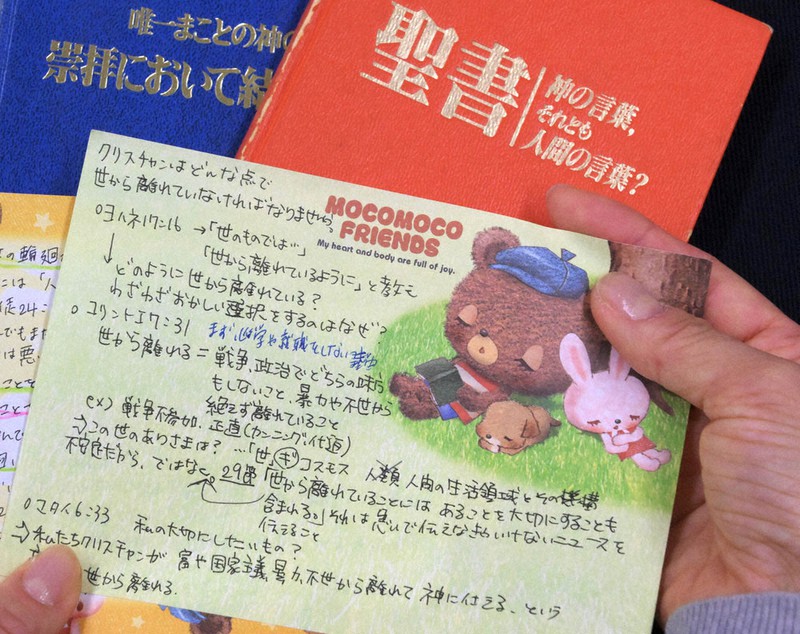 唯一まことの神の
崇拝において結
聖書
神の言葉,
それとも
人間の言葉?
クリスチャンはどんな点で
世から離れていなければなりませんか。
MOCOMOCO
FRIENDS
My heart and body are full of joy.
○ヨハネ17:16 →「世のものでは…」
「世から離れているように」と教え
↓どのように世から離れている?
わざわざおかしい選択をするのはなぜ?
○コリントI7:31
世から離れる = 戦争、政治でどちらの味方
もしないこと、暴力や不世から
絶えず離れていること
ex) 戦争不参加、正直(カンニング,代返)
→この世のありさまは? …「世」ギ コスモス 人間の生活領域とその機構
不安定だから、ではなく 29「世から離れていることには あることを大切にすることも
含まれる。」それは急いで伝えなきゃいけないニュースを
伝えること
○マタイ6:33 私の大切にしたいもの?
→私たちクリスチャンが 富や国家主義、暴力、不世から離れて 神に仕える、という
世から離れる.
の輪廻
には「
徒24:
でもま
は悪